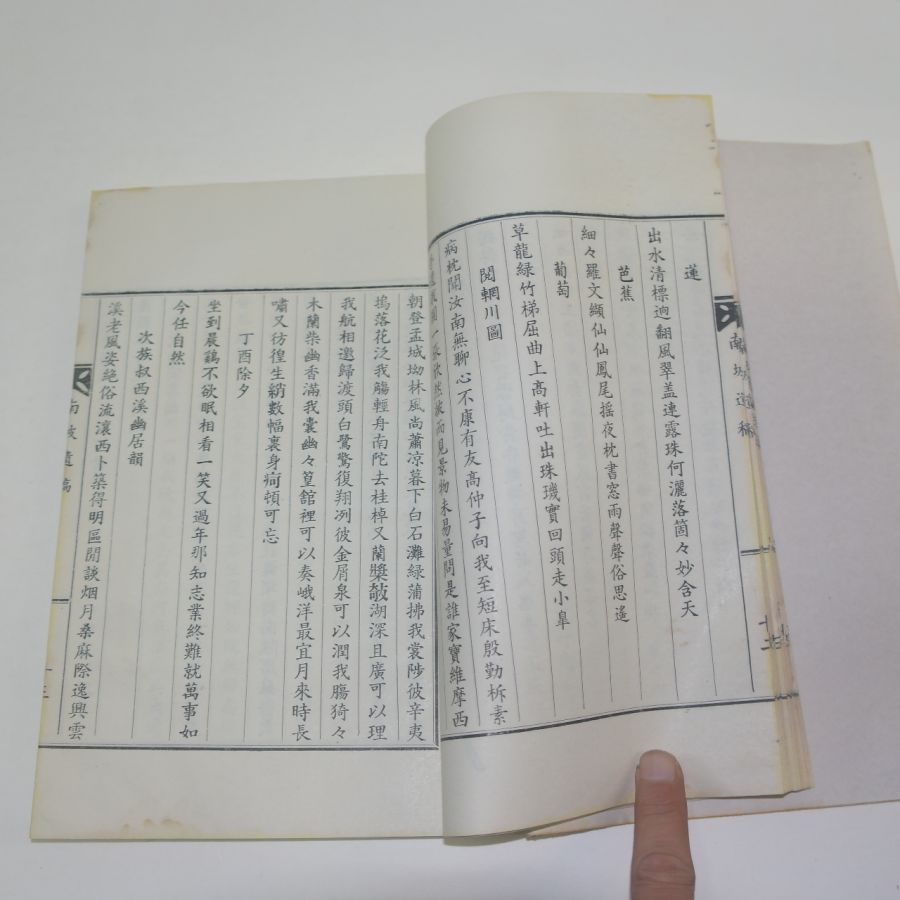 蓮
出水清標逈翻風翠盖連露珠何灑落箇々妙含天
芭蕉
細々羅文纈仙仙鳳尾摇夜枕書窓雨聲聲俗思遙
葡萄
草龍緑竹梯屈曲上高軒吐出珠璣實回頭走小皐
閱輞川圖
病枕閒汝南無聊心不康有友高仲子向我至短床殷勤柝素
依然披而見景物未易量問是誰家寶維摩西
朝登孟城坳林風尚蕭凉暮下白石灘緑蒲拂我裳陟彼辛夷
塢落花泛我觴輕舟南陀去桂棹又蘭槳攲湖深且廣可以理
我航相邀歸渡頭白鷺驚復翔冽彼金屑泉可以潤我膓猗々
木蘭柴幽香滿我囊幽々篁館裡可以奏峨洋最宜月來時長
嘯又彷徨生綃數幅裏身疴頓可忘
丁酉除夕
坐到晨鷄不欲眠相看一笑又過年那知志業終難就萬事如
今任自然
次族叔西溪幽居韻
溪老風姿絶俗流瀼西卜築得明區閒談烟月桑麻際逸興雲
南坡遺稿